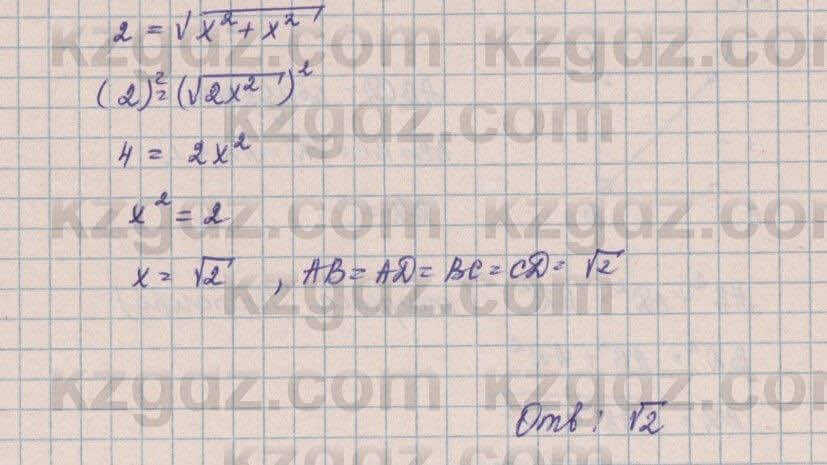 2 = √(x² + x²)
(2)² = (√(2x²))²
4 = 2x²
x² = 2
x = √2 , AB = AD = BC = CD = √2
Отв: √2
kzgdz.com kzgdz.com
kzgdz.com
kzgdz.com kzgdz.com
kzgdz.com
kzgdz.com kzgdz.com
kzgdz.com